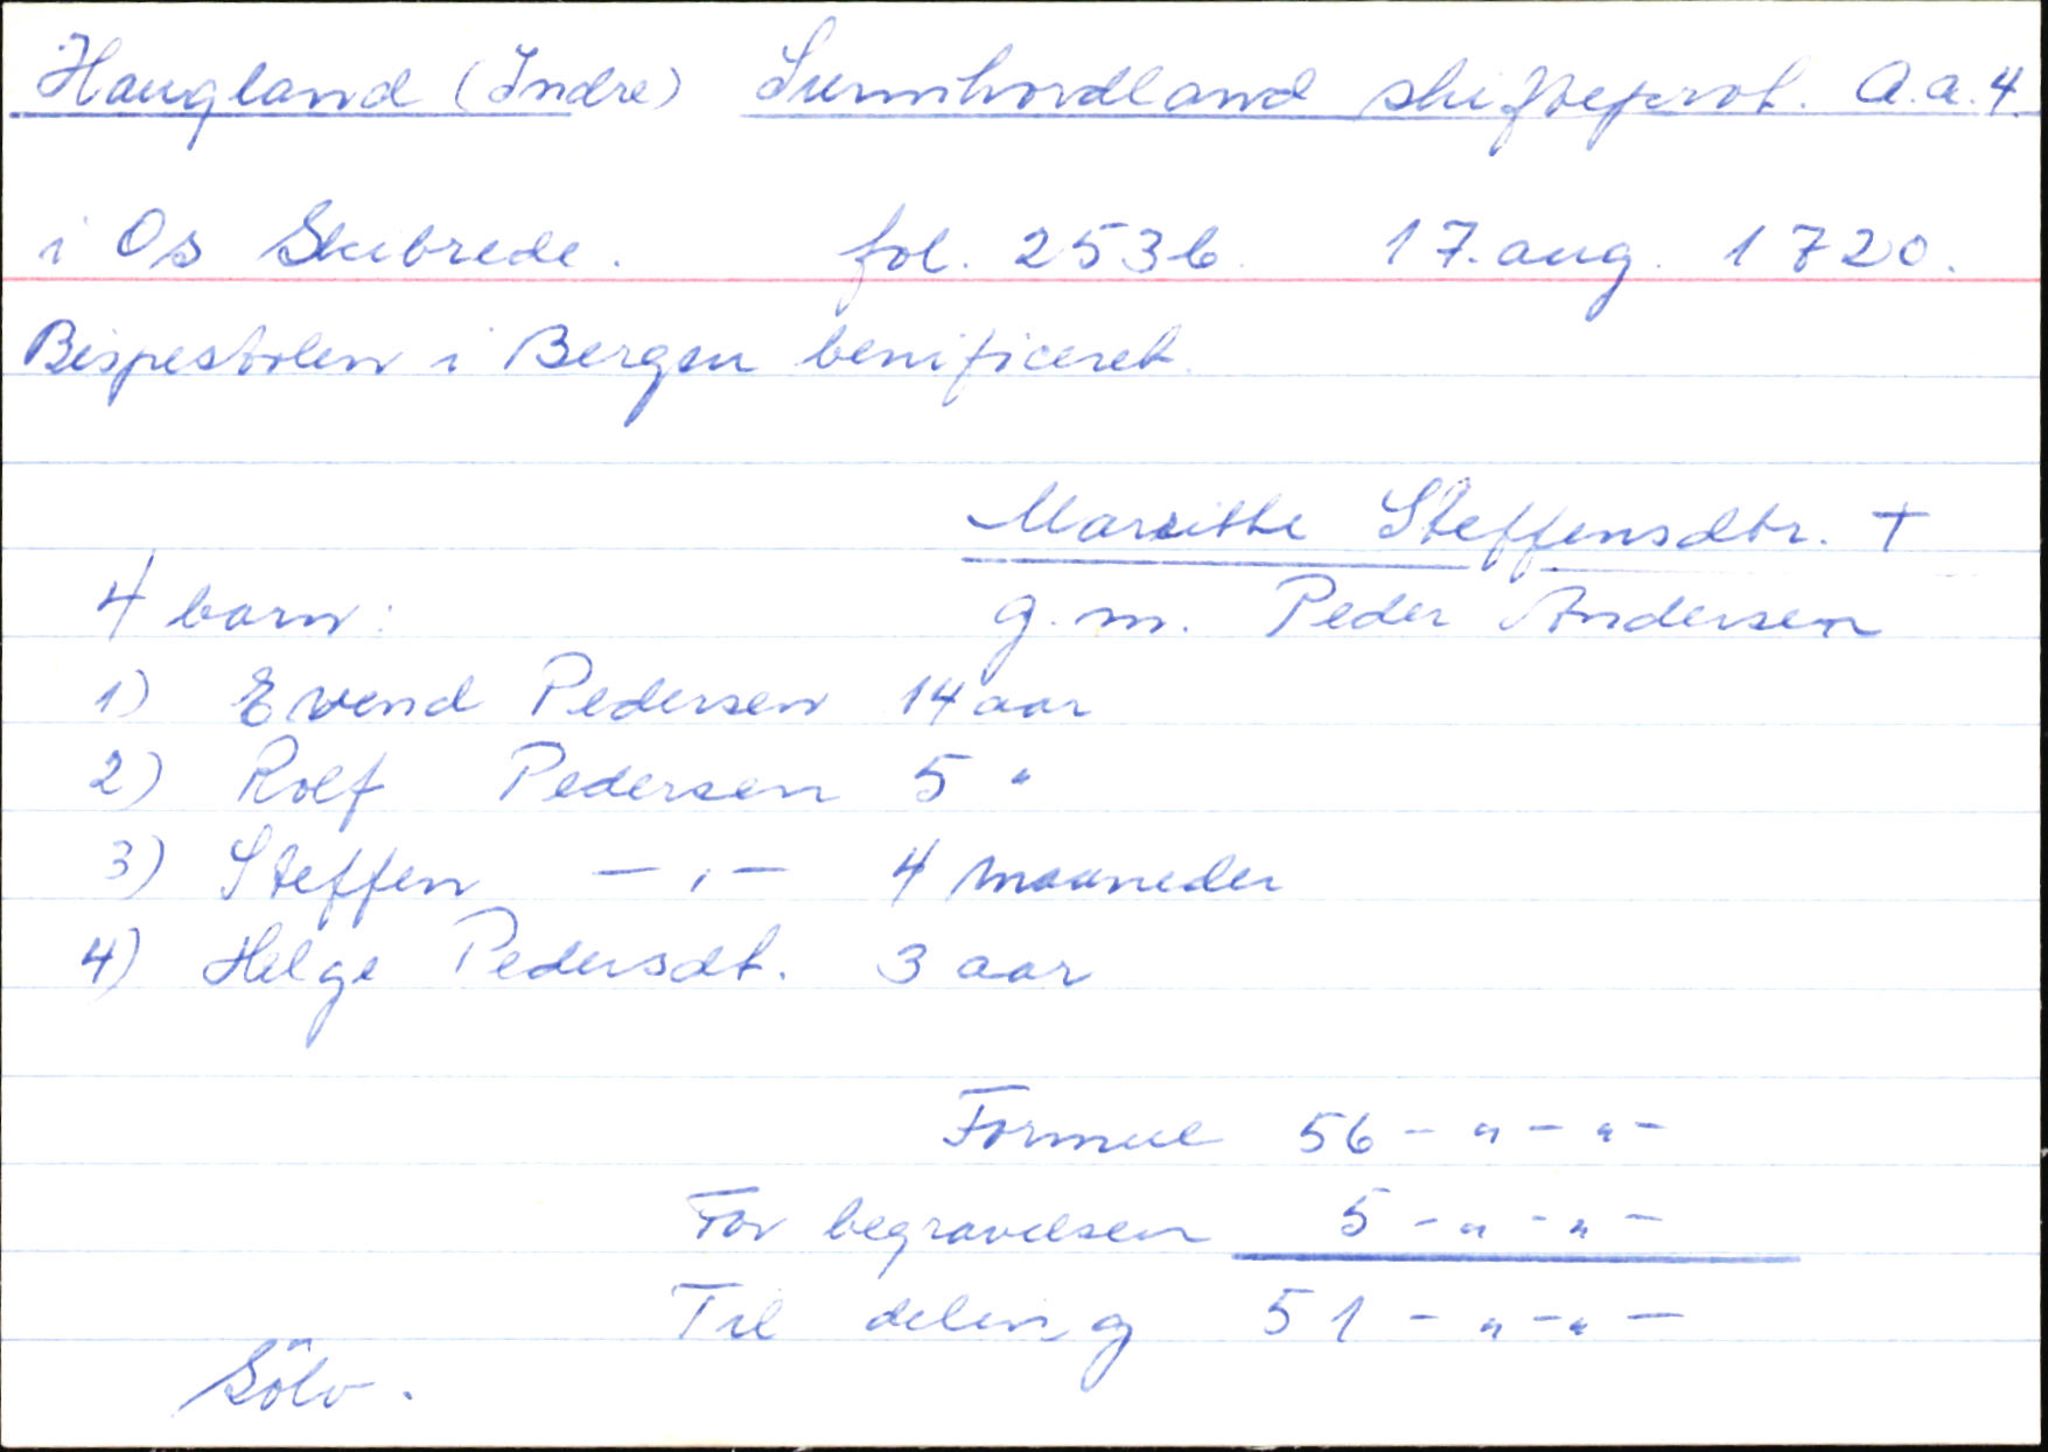 Haugland (Indre) Sunnhordland skifteprot. A.a.4.
i Os Skibrede. fol. 253b 17. aug. 1720.
Bispestolen i Bergen benificeret.
Marithe Steffensdtr. +
4 barn: g.m. Peder Andersen
1) Evend Pedersen 14 aar
2) Rolf Pedersen 5 "
3) Steffen - , - 4 maaneder
4) Helge Pedersdt. 3 aar
Formue 56 - " - " -
For begravelsen 5 - " - " -
Til deling 51 - " - " -
Sölv.